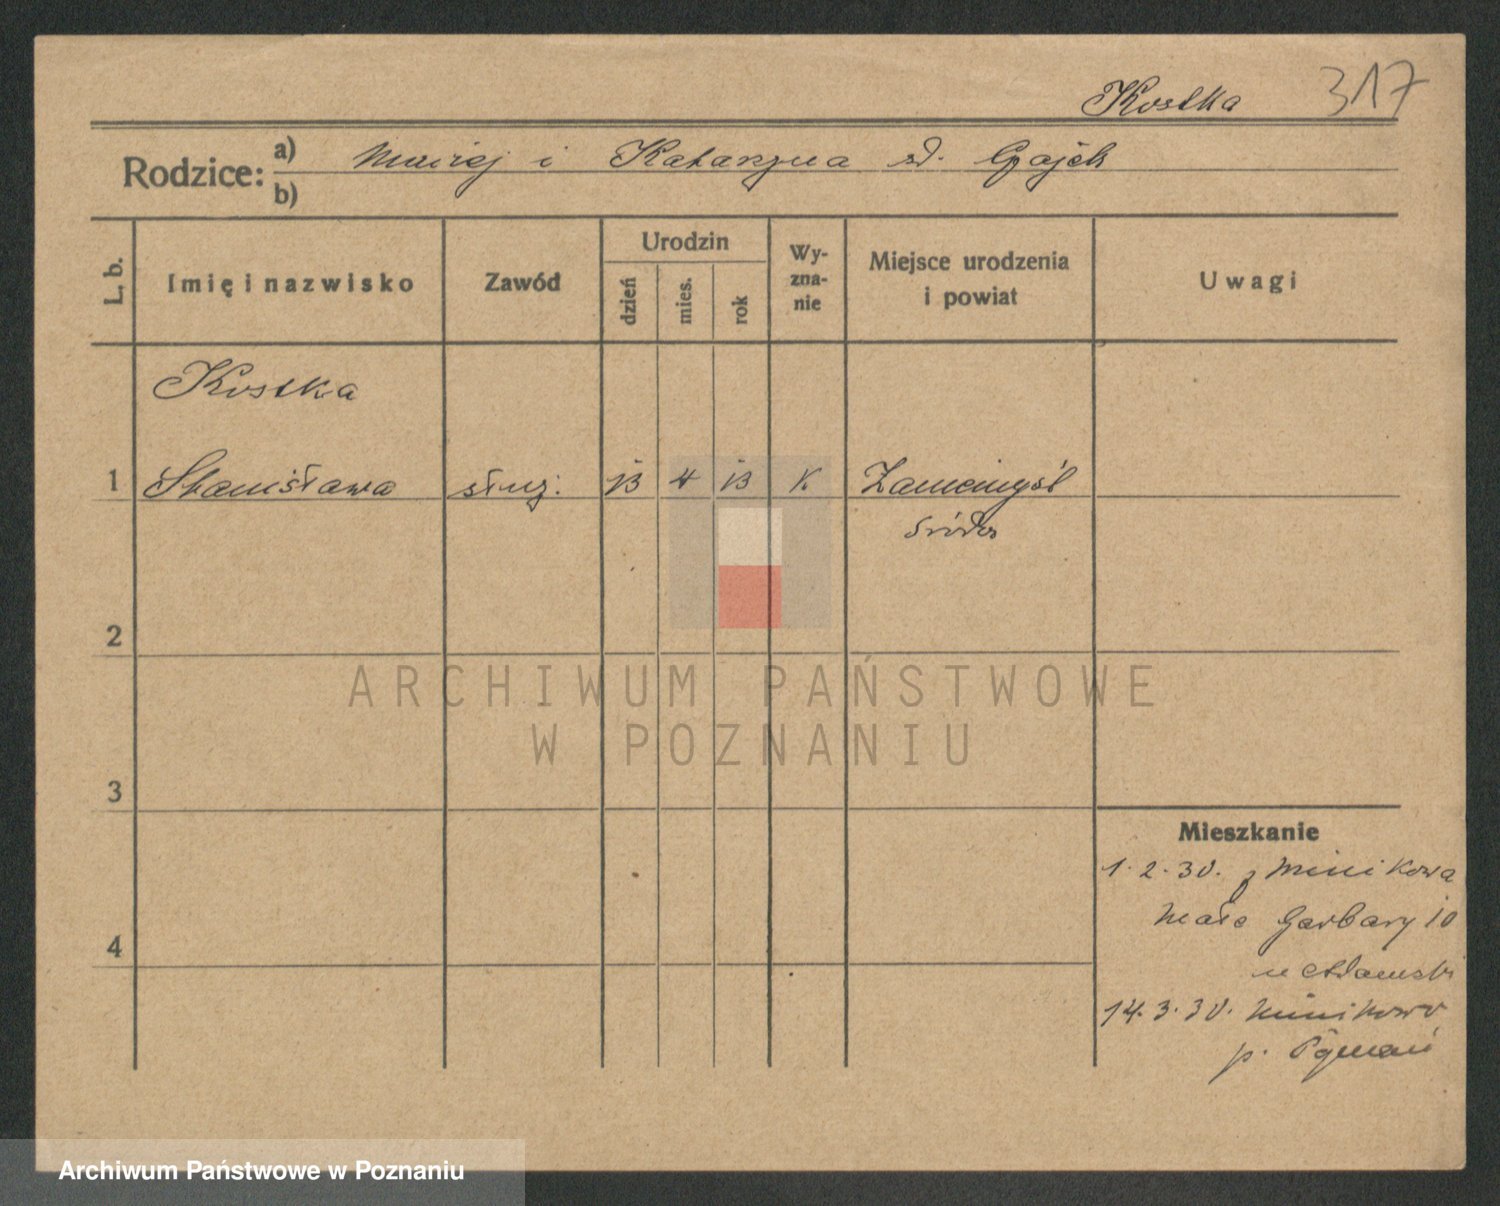 Kostka 317
Rodzice: a) Maciej i Katarzyna zd. Gzajek
b)
L. b.
Imię i nazwisko
Zawód
Urodzin
dzień
mies.
rok
Wy-
zna-
nie
Miejsce urodzenia
i powiat
Uwagi
Kostka
1 Stanisława służ. 13 4 13 K Zaniemyśl
Środa
2
3
4
Mieszkanie
1.2.30. z Minikowa
Małe Garbary 10
u Adamski
14.3.30. Minikowo
p. Poznań
ARCHIWUM PAŃSTWOWE
W POZNANIU
Archiwum Państwowe w Poznaniu